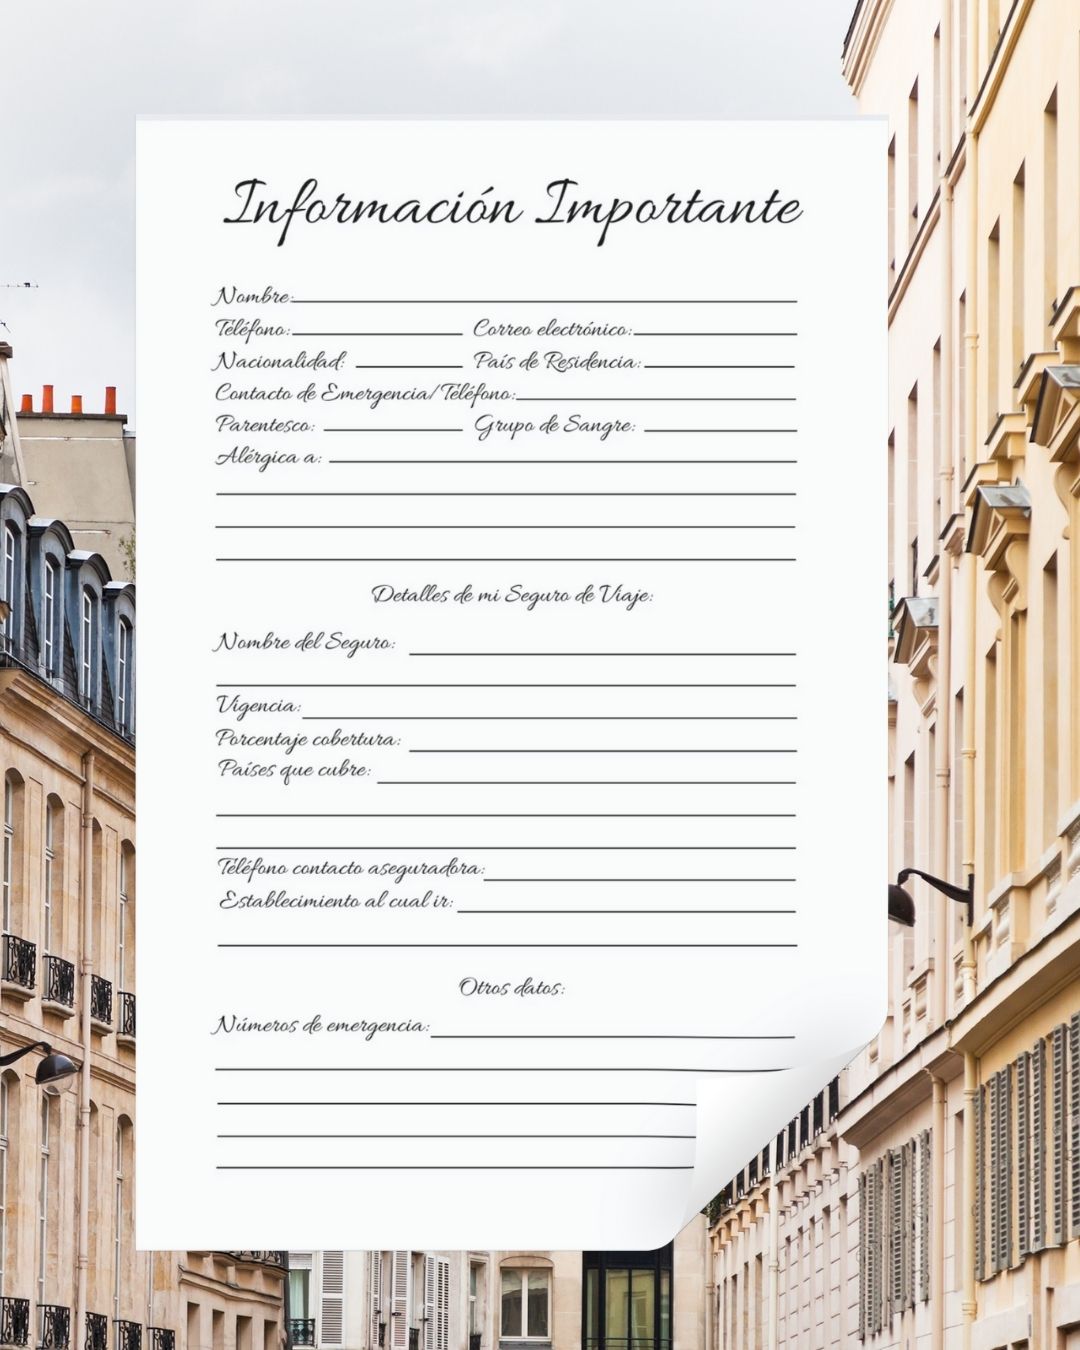 Información Importante
Nombre:
Teléfono: Correo electrónico:
Nacionalidad: País de Residencia:
Contacto de Emergencia/Teléfono:
Parentesco: Grupo de Sangre:
Alérgica a:
Detalles de mi Seguro de Viaje:
Nombre del Seguro:
Vigencia:
Porcentaje cobertura:
Países que cubre:
Teléfono contacto aseguradora:
Establecimiento al cual ir:
Otros datos:
Números de emergencia: